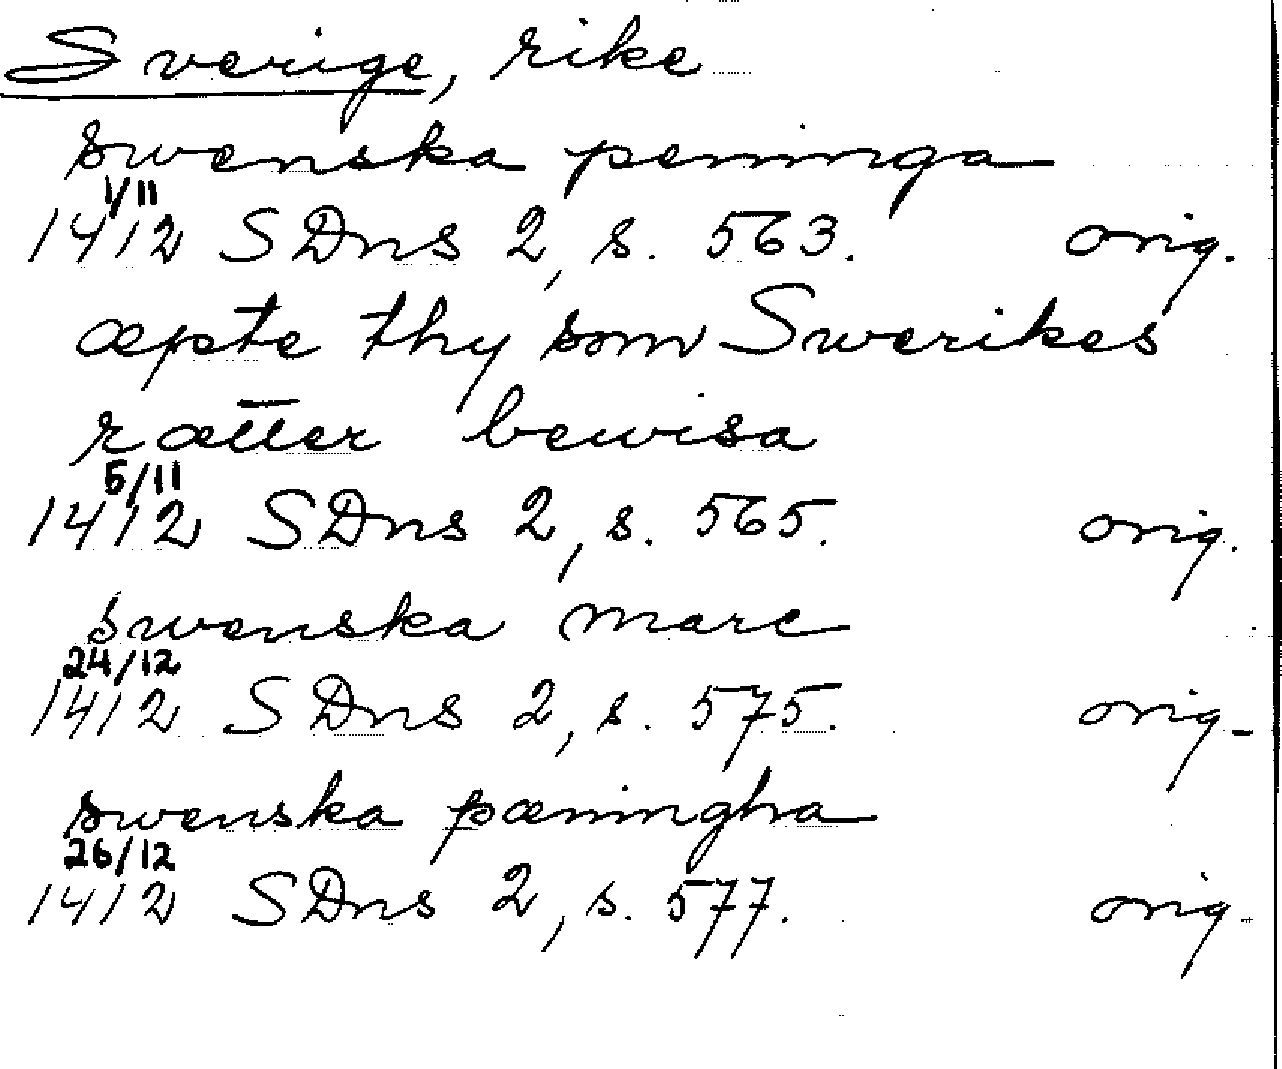 Sverige, rike
swenska peninga
1/11
1412 SDns 2, s. 563. orig.
æpte thy som Swerikes
rætter bewisa
5/11
1412 SDns 2, s. 565. orig.
swenska marc
24/12
1412 SDns 2, s. 575. orig.
swenska pæningha
26/12
1412 SDns 2, s. 577. orig.